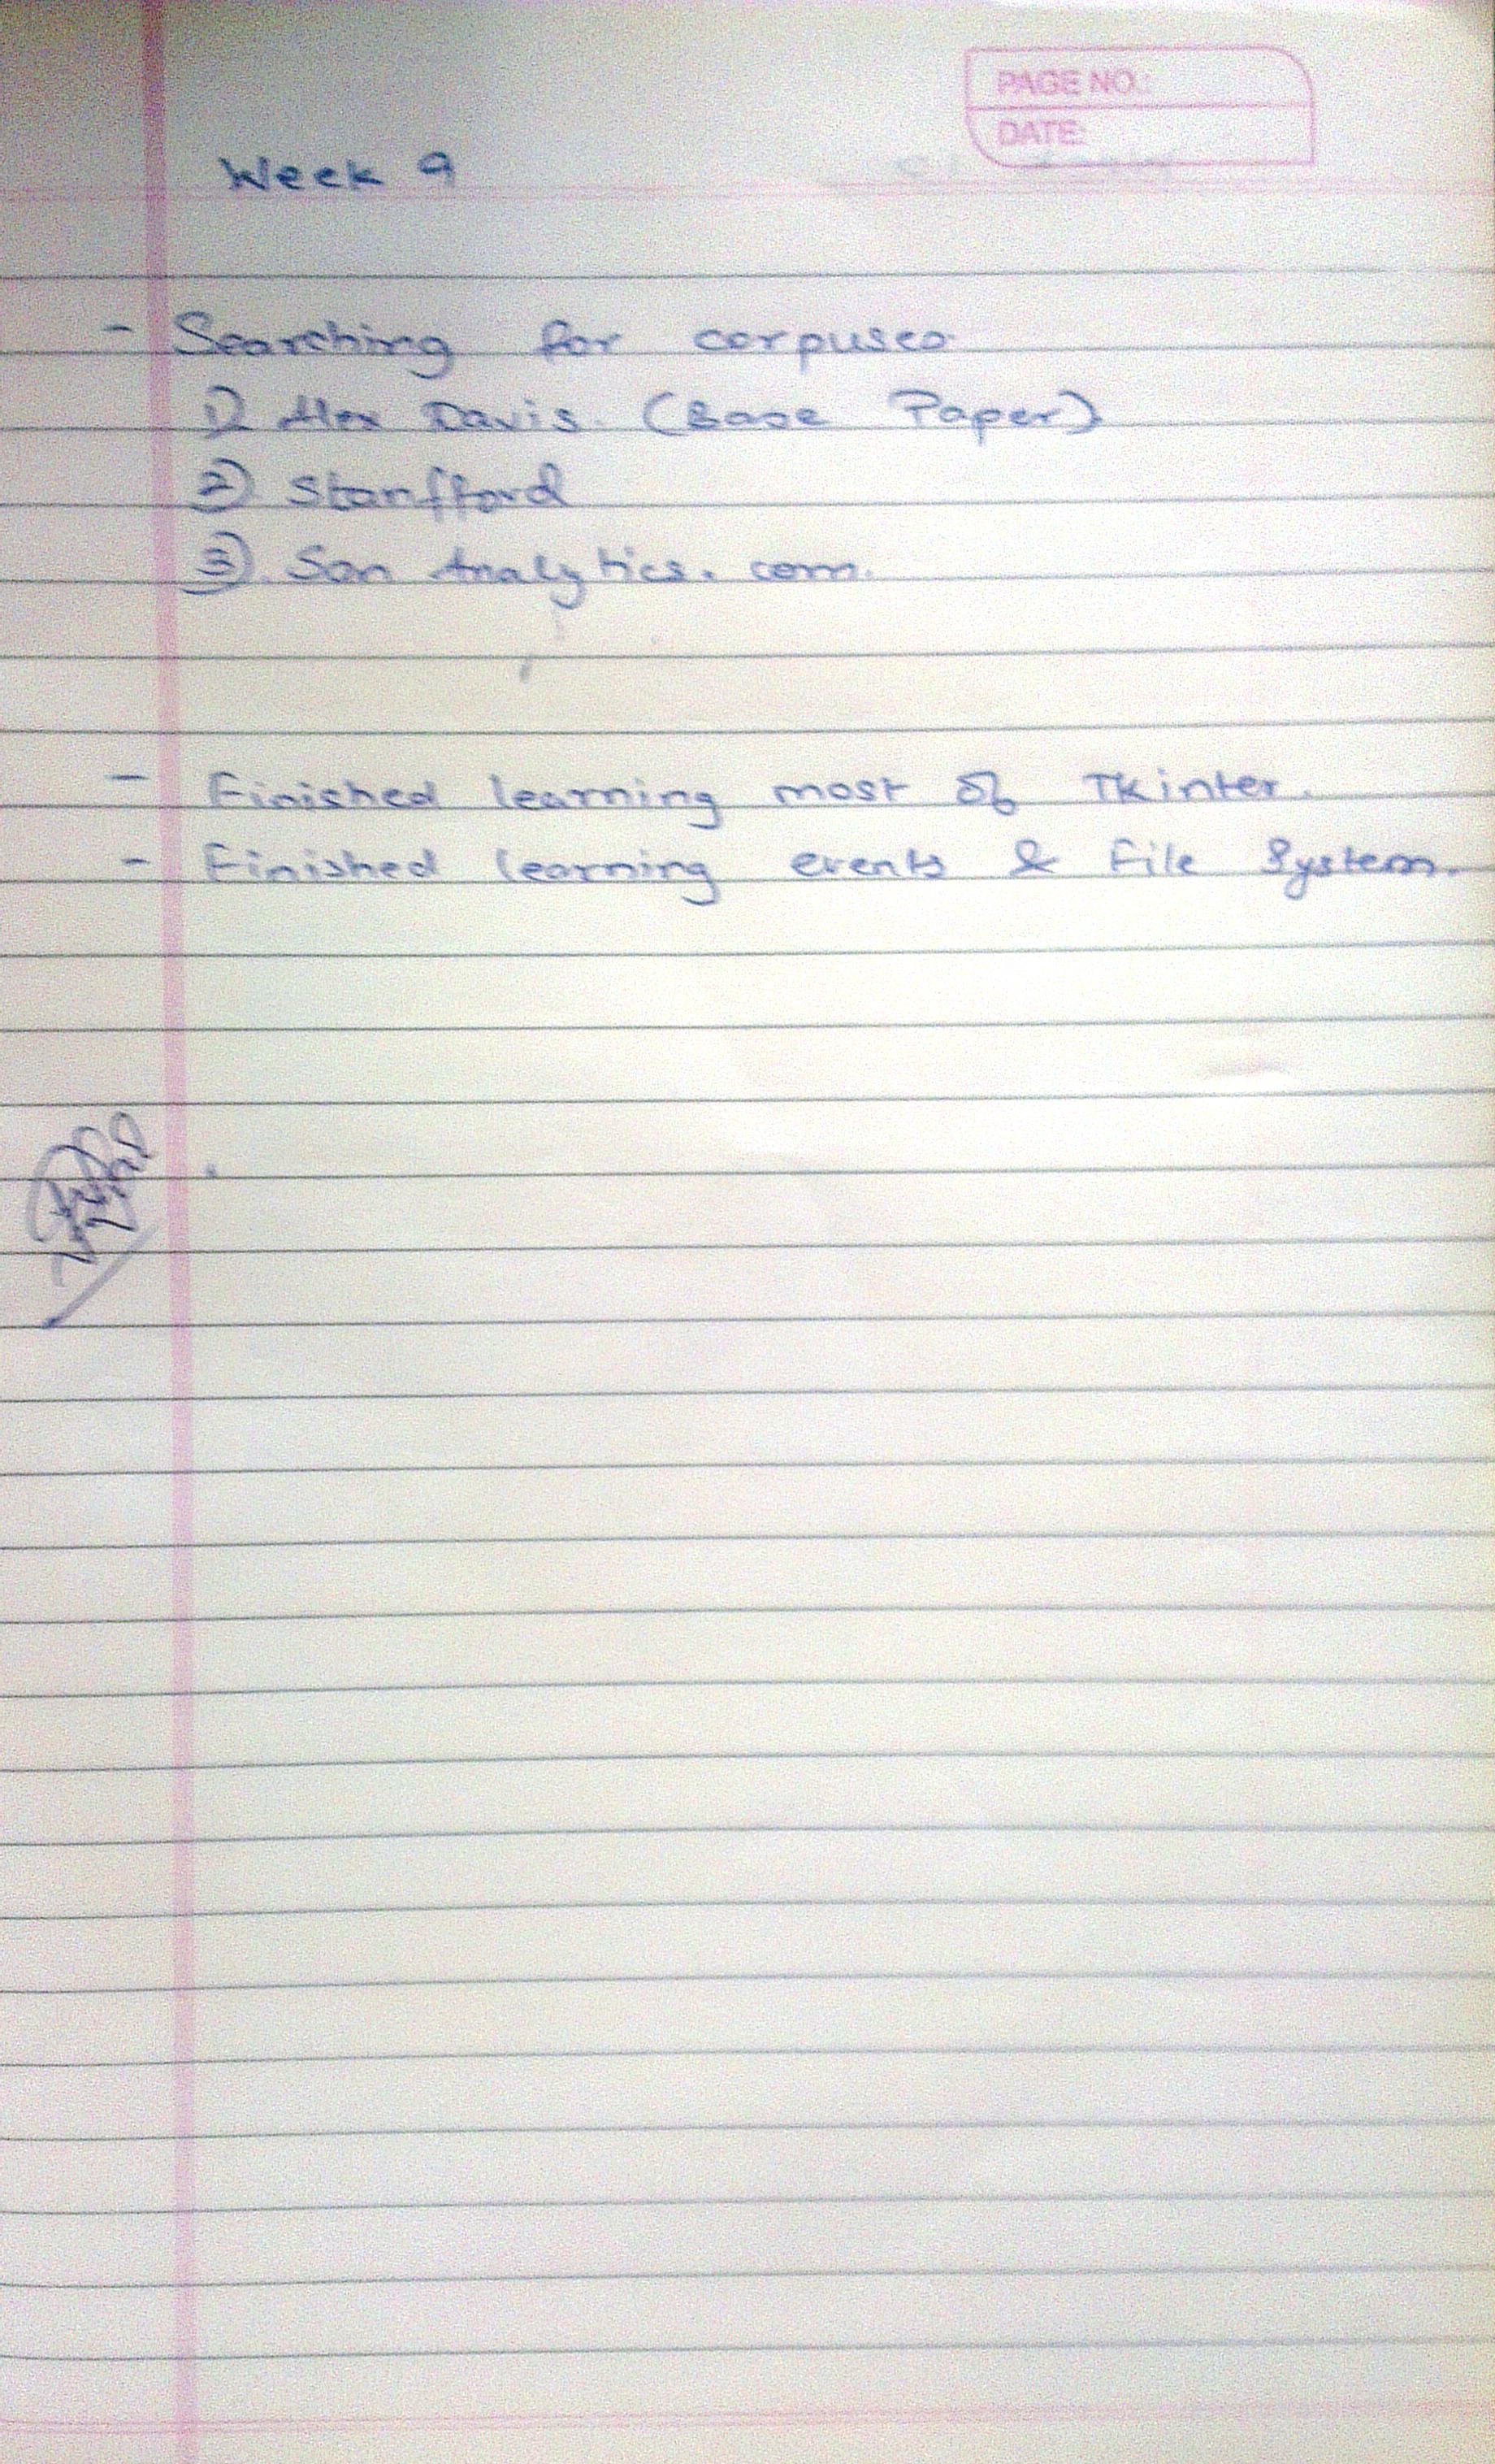 PAGE NO.:
DATE:
Week 9
- Searching for corpuses
1) Alex Davis. (Base Paper)
2) Stanfford
3) San Analytics. com.
- Finished learning most of TKinter.
- Finished learning events & File System.